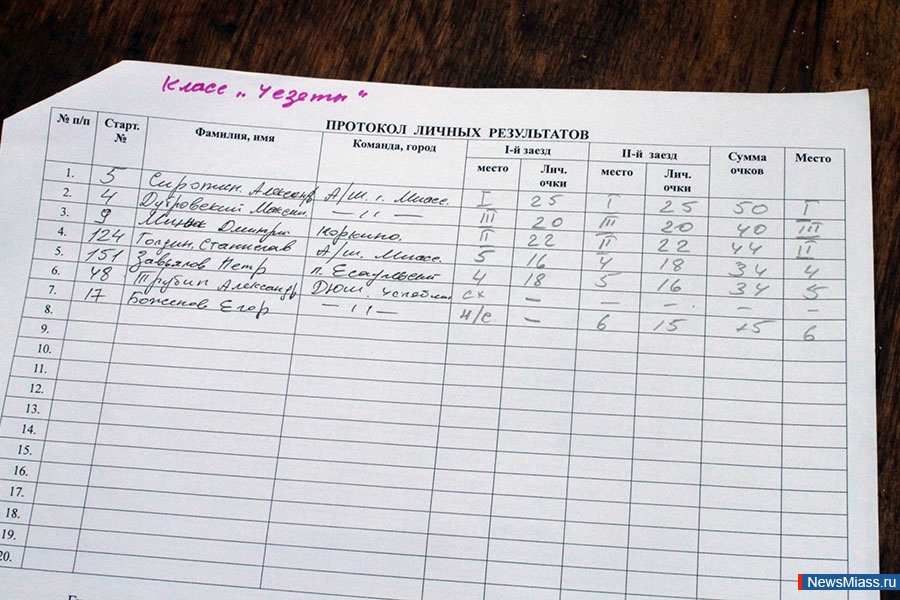 Класс „Чезеты"
ПРОТОКОЛ ЛИЧНЫХ РЕЗУЛЬТАТОВ
№ п/п Старт. № Фамилия, имя Команда, город I-й заезд место Лич. очки II-й заезд место Лич. очки Сумма очков Место
1. 5 Сиротин Александр А/ш. г. Миасс. I 25 I 25 50 I
2. 4 Дубровский Максим — 11 — III 20 III 20 40 III
3. 9 Дмитрий Коркино. II 22 II 22 44 II
4. 124 Голдин Станислав А/ш. Миасс. 5 16 4 18 34 4
5. 151 Завьялов Петр п. Есаульский 4 18 5 16 34 5
6. 48 Трубин Александр ДЮШ. сх — — — — —
7. 17 Боженов Егор — 11 — н/с. — 6 15 15 6
8.
9.
10.
11.
12.
13.
14.
15.
16.
17.
18.
19.
20.
NewsMiass.ru